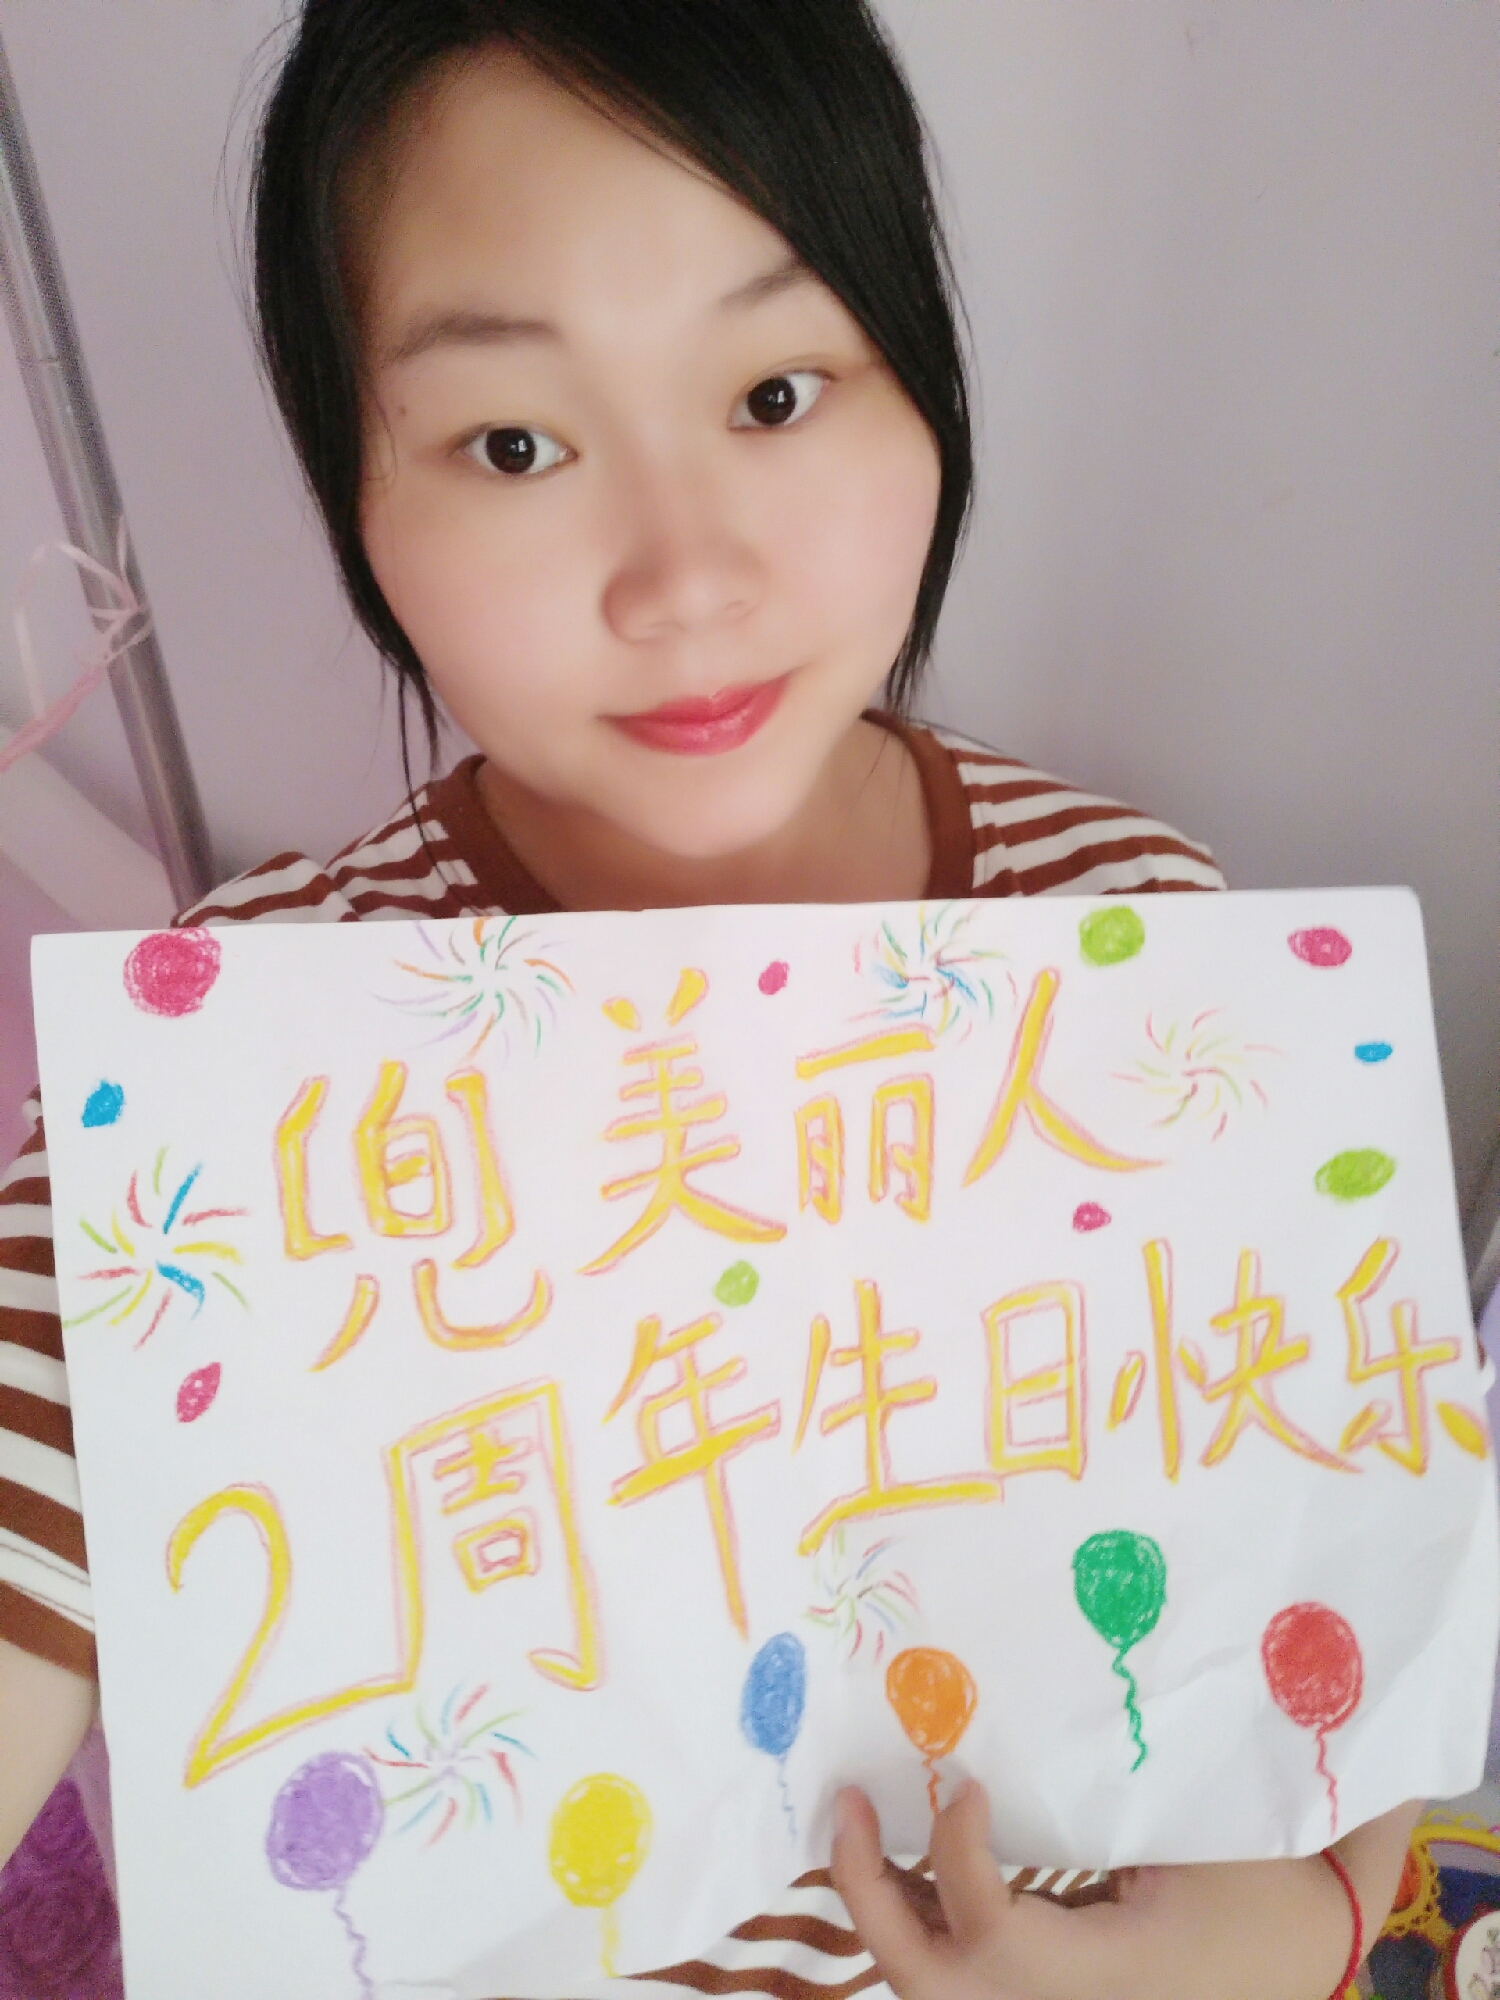 兜美丽人
2周年生日快乐